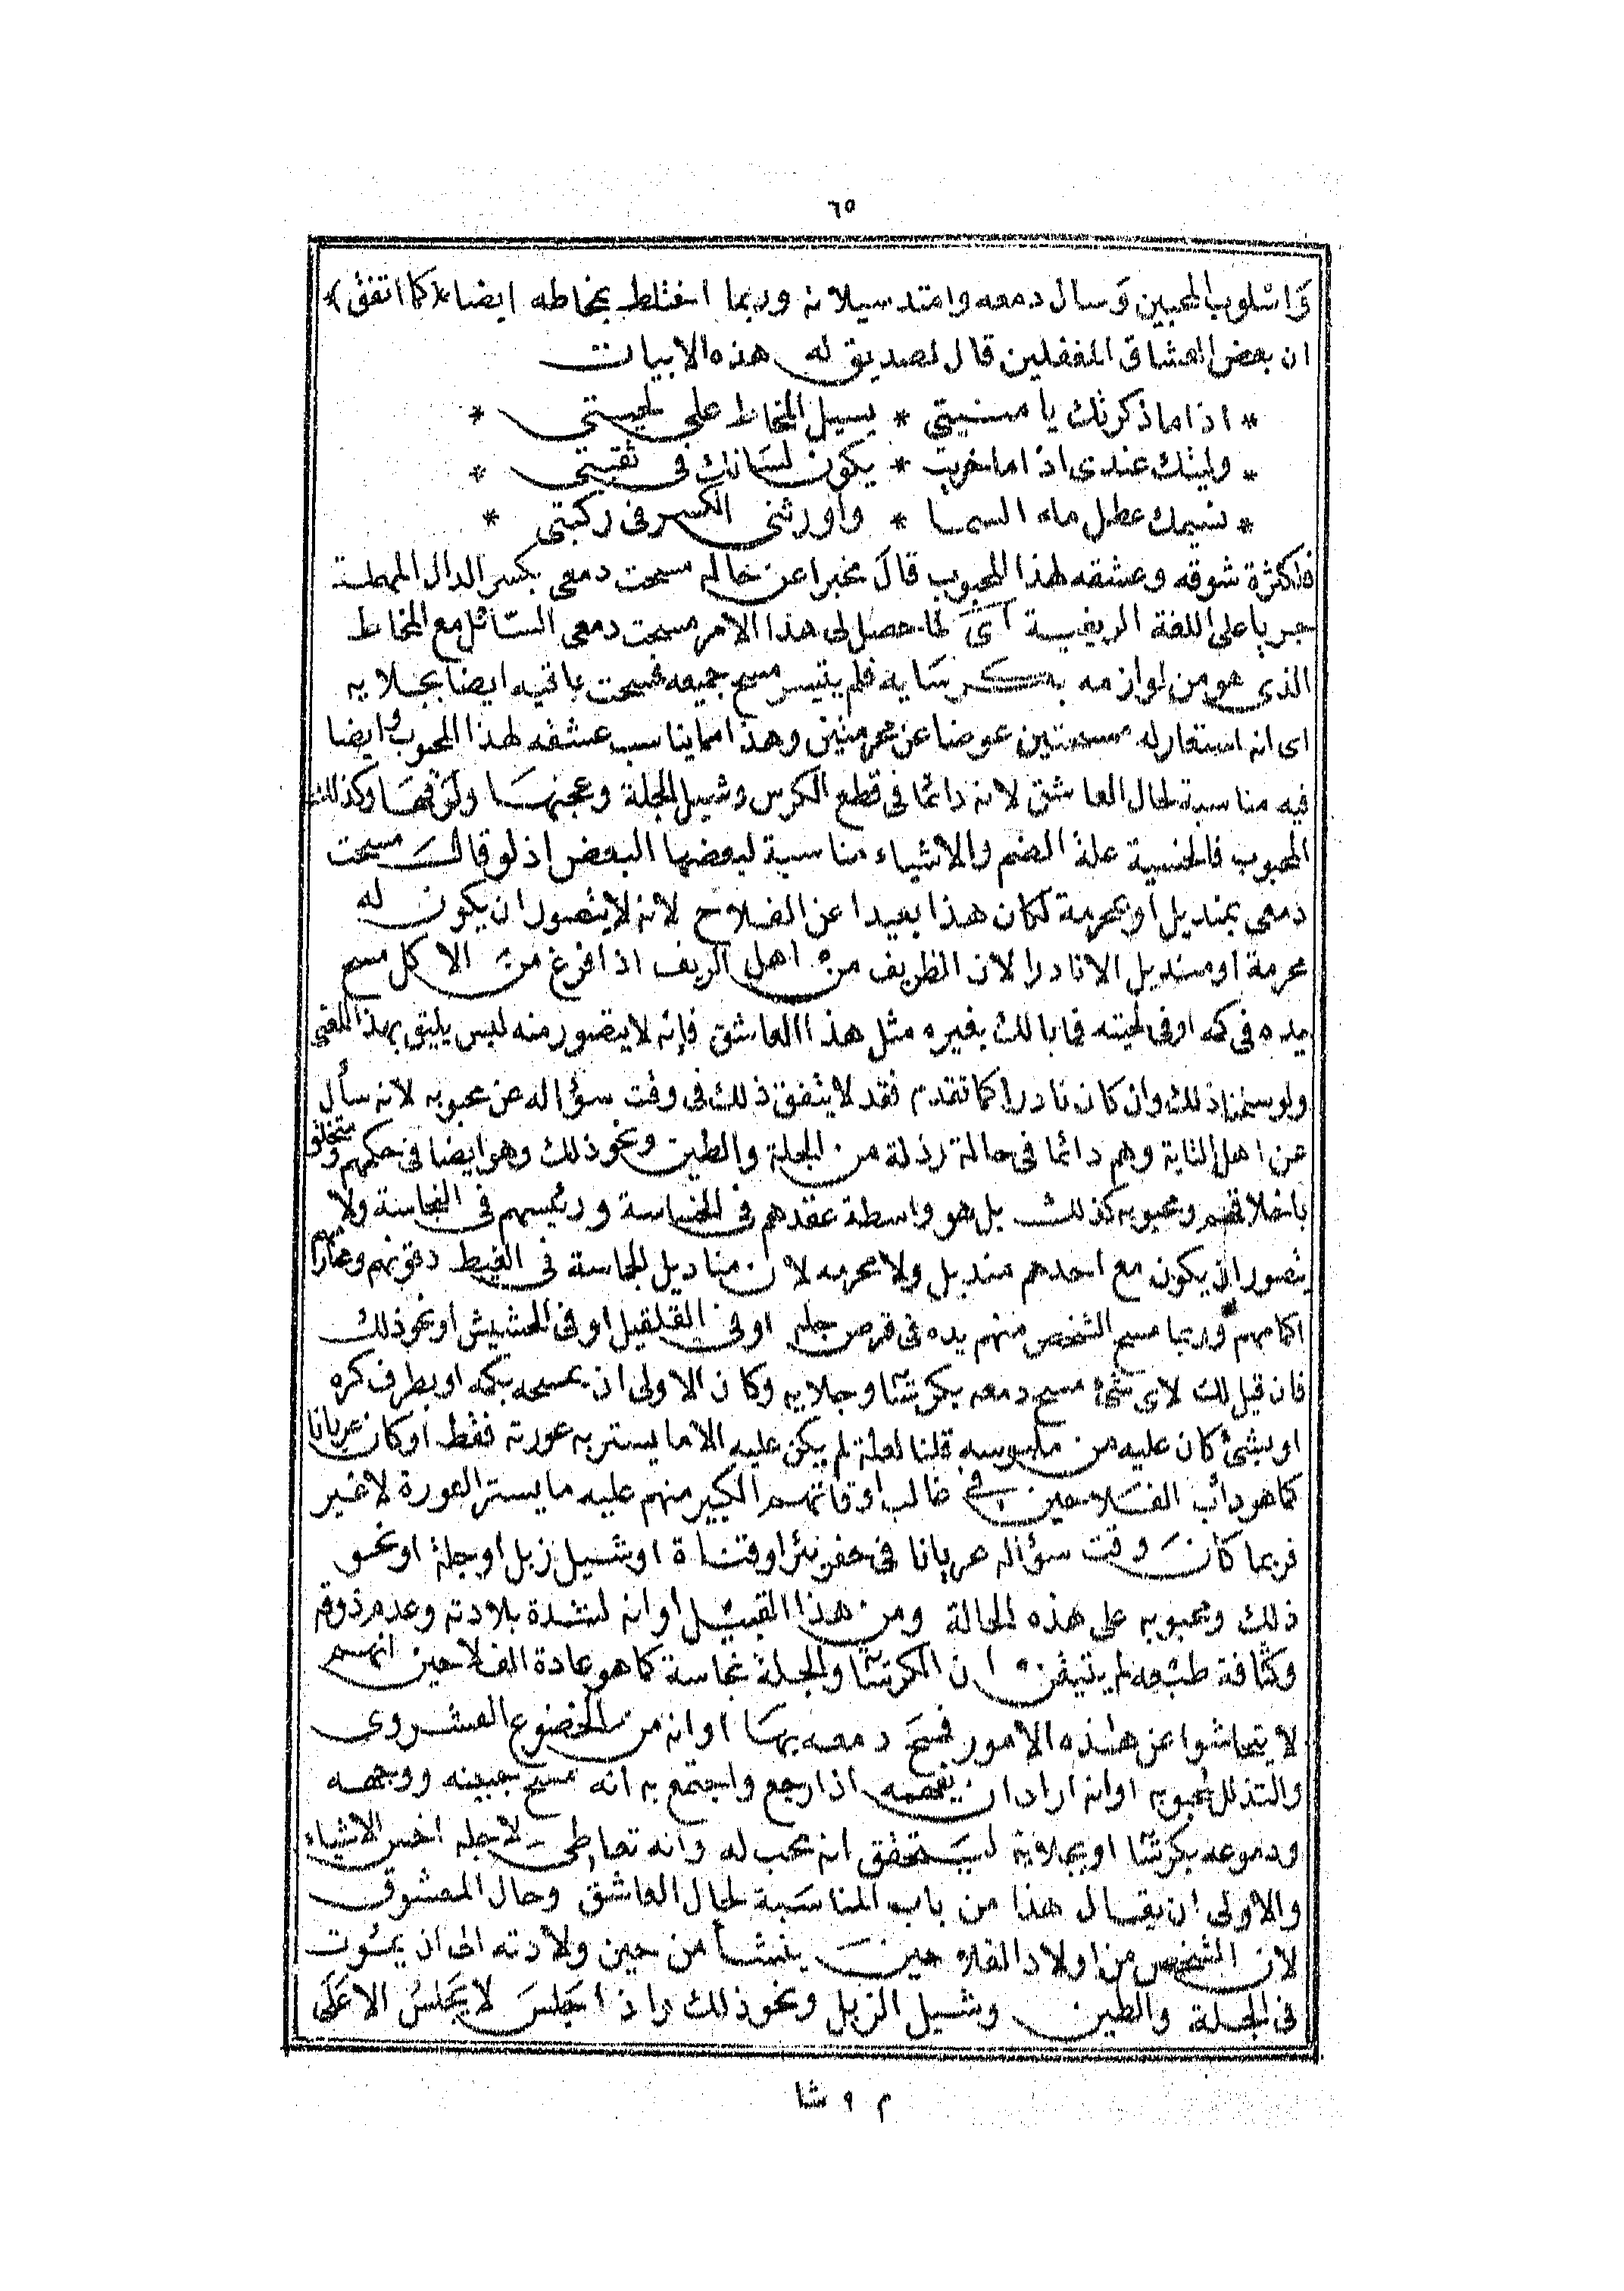 ٦٥
فى اسلوب المحبين وسال دمعه وامتد سيلانه وربما اختلط بمخاطه ايضا (كما اتفق)
ان بعض العشاق المغفلين قال لصديق له هذه الابيات
* اذا ماذكرتك يا منيتى * يسيل المخاط على لحيتى *
* وليتك عندى اذا ماخريت * يكون لسانك فى ثقبتى *
* نسيمك عطل ماء السما * واورثنى الكسر فى ركبتى *
فلكثرة شوقه وعشقه لهذا المحبوب قال مخبرا عن حاله مسحت دمعى بكسر الدال المهملة
جريا على اللغة الريفية اى لما حصل لى هذا الامر مسحت دمعى السائل مع المخاط
الذى هو من لوازمه بكرشايه فلم يتيسر مسح جميعه فمسحت باقيه ايضا بجلايه
اى انه استعار له مسحتين عوضا عن محرمتين وهذا مما يناسب عشقه لهذا المحبوب وايضا
فيه مناسبة لحال العاشق لانه دائما فى قطع الكرس وشيل الجلة وعجنها ولزقها وكذلك
المحبوب فالجنسية علة الضم والاشياء مناسبة لبعضها البعض اذ لو قال مسحت
دمعى بمنديل او بمحرمة لكان هذا بعيدا عن الفلاح لانه لا يتصور ان يكون له
محرمة او منديل الا نادرا لان الظريف من اهل الريف اذا فرغ من الاكل مسح
يده فى كمه او فى لحيته فما بالك بغيره مثل هذا العاشق فإنه لا يتصور منه لبس يليق بهذا المعنى
ولو سلمنا ذلك وان كان نادرا كما تقدم فقد لا يتفق ذلك فى وقت سؤاله عن محبوبه لانه سأل
عن اهل التاية وهم دائما فى حالة رذلة من الجلة والطين ونحو ذلك وهو ايضا فى حكمهم ومتخلق
باخلاقهم ومحبوبه كذلك بل هو واسطة عقدهم فى الخساسة ورئيسهم فى النجاسة ولا
يتصور ان يكون مع احدهم منديل ولا محرمه لان مناديل الجاسة فى الغيط دقونهم ومحارمهم
اكمامهم وربما مسح الشخص منهم يده فى قرص جله او فى القلقيل او فى الحشيش او نحو ذلك
فان قيل لك لاى شئ مسح دمعه بكرشا وجلايه وكان الاولى ان يمسحه بكمه او بطرف كره
او بشئ كان عليه من ملبوسه قلنا لعله لم يكن عليه الا ما يستر به عورته فقط او كان عريانا
كما هو دأب الفلاحين فى غالب اوقاتهم الكبير منهم عليه ما يستر العورة لا غير
فربما كان وقت سؤاله عريانا فى حفر بئر او قناة او شيل زبل او جلة او نحو
ذلك ومحبوبه على هذه الحالة ومن هذا القبيل او انه لشدة بلادته وعدم ذوقه
وكثافة طبعه لم يتيقن ان الكرشا والجلة نجاسة كما هو عادة الفلاحين انهم
لا يتحاشوا عن هذه الامور فمسح دمعه بها او انه من الخضوع العشروى
والتذلل لمحبوبه او انه اراد ان يفحمه اذا رجع واجتمع به انه مسح جبينه ووجهه
ودموعه بكرشا او بجلاية ليتحقق انه محب له وانه تعاطى لاجله اخس الاشياء
والاولى ان يقال هذا من باب المناسبة لحال العاشق وحال المعشوق
لان الشخص من اولاد الفلاحين ينشأ من حين ولادته الى ان يموت
فى الجلة والطين وشيل الزبل ونحو ذلك واذا جلس لا يجلس الا على
م ٩ شا